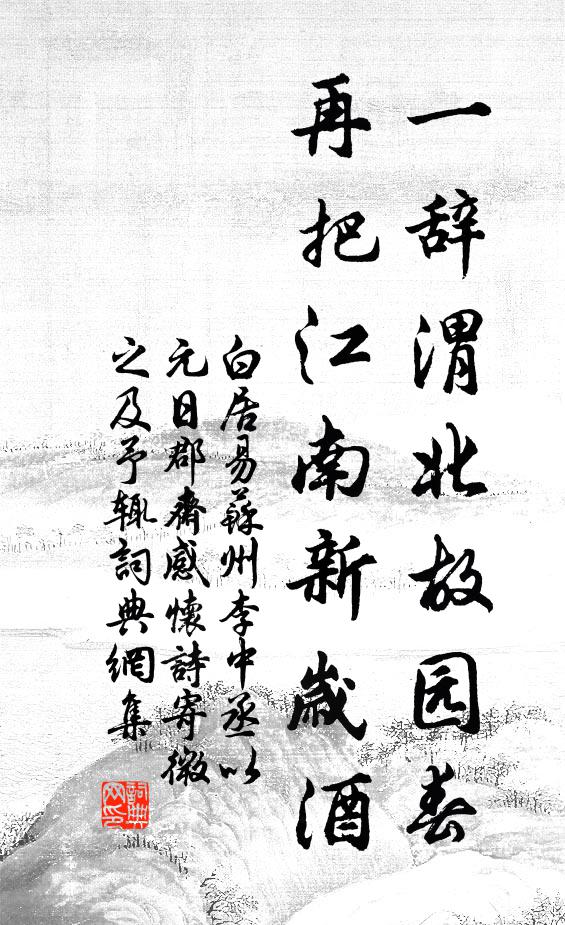 一辞渭北故园春
再把江南新歲酒
白居易蘇州李中丞以
元日郡齋感懷詩寄微
之及予輒詞典網集
詞典
网印